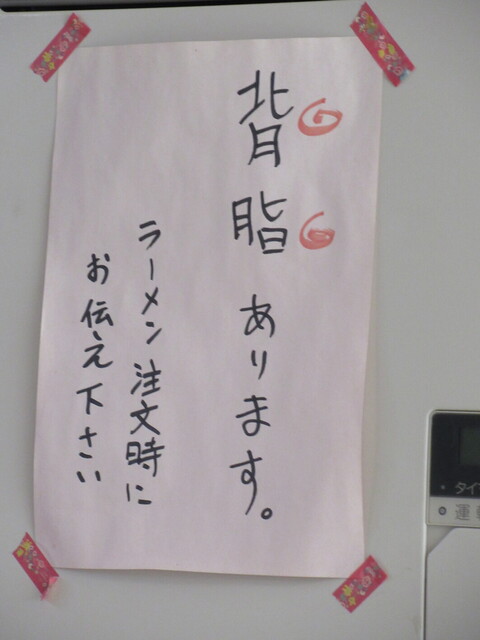 背脂あります。
ラーメン注文時に
お伝え下さい
タイ